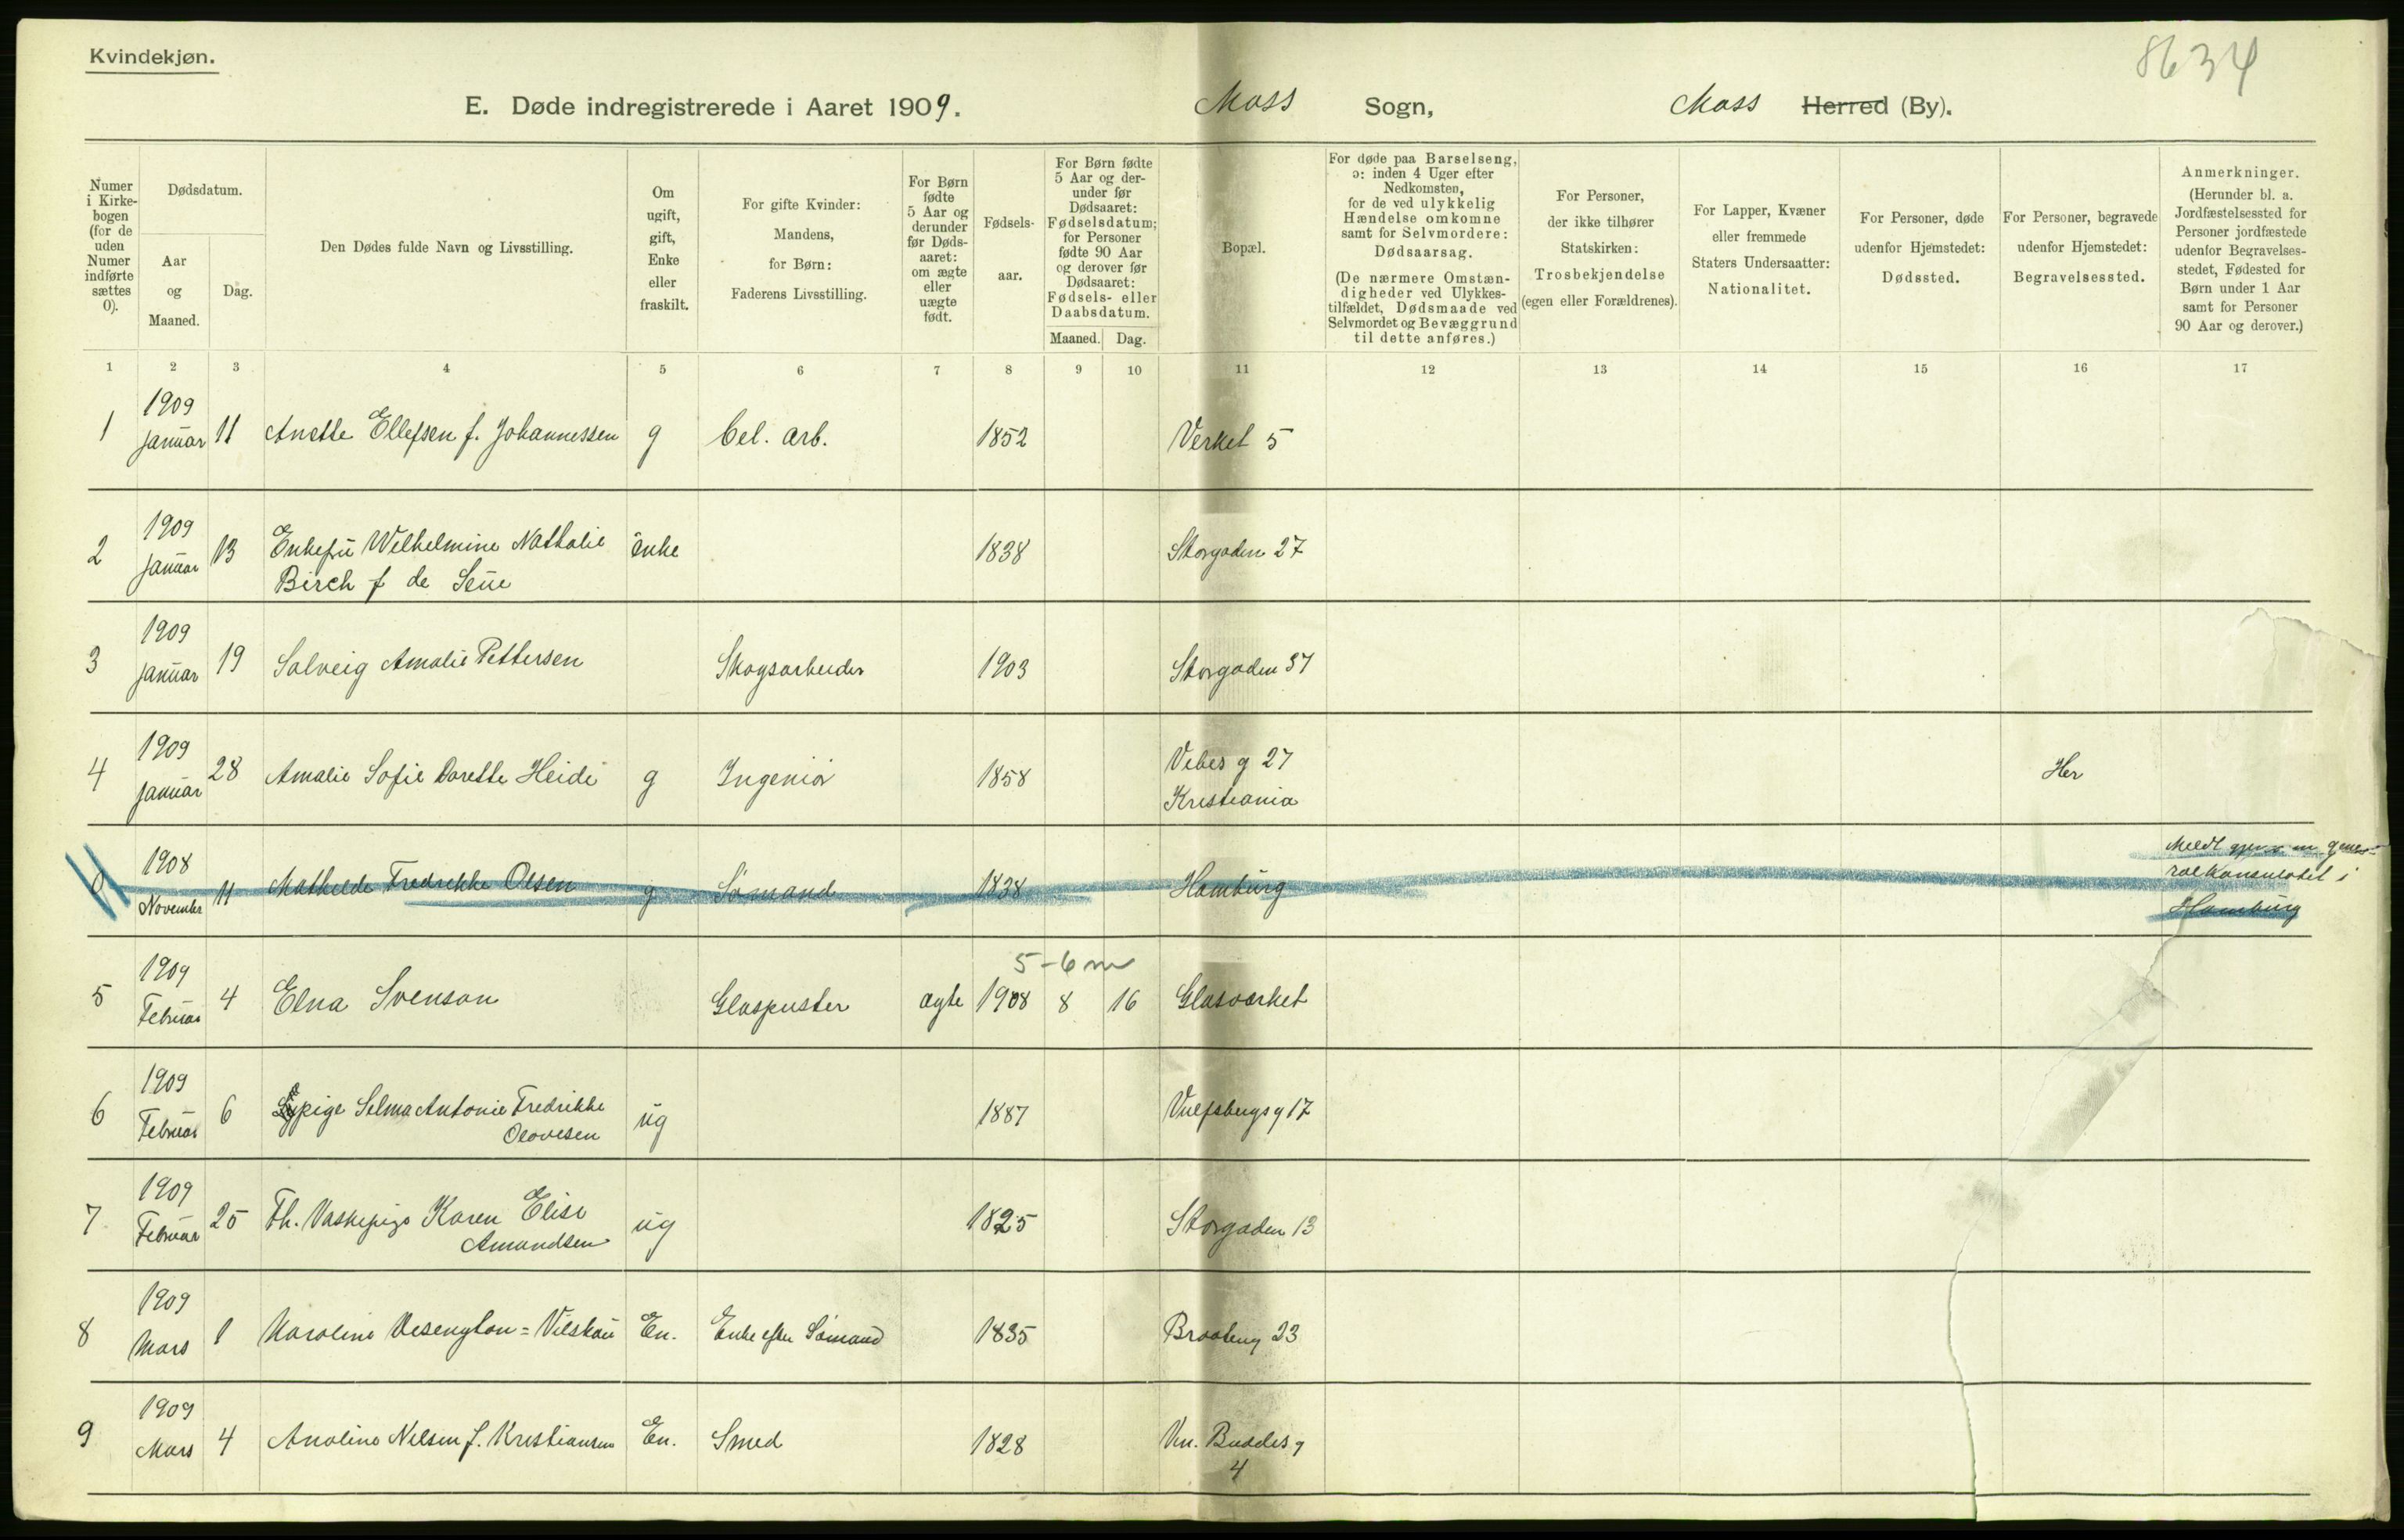 Kvindekjøn.
8634
E. Døde indregistrerede i Aaret 1909. Moss Sogn, Moss Herred (By).
Numer i Kirkebogen (for de uden Numer indførte sættes 0).
Dødsdatum.
Aar og Maaned.
Dag.
Den Dødes fulde Navn og Livsstilling.
Om ugift, gift, Enke eller fraskilt.
For gifte Kvinder: Mandens, for Børn: Faderens Livsstilling.
For Børn fødte 5 Aar og derunder før Dødsaaret: om ægte eller uægte født.
Fødselsaar.
For Børn fødte 5 Aar og derunder før Dødsaaret: Fødselsdatum; for Personer fødte 90 Aar og derover før Dødsaaret: Fødsels- eller Daabsdatum.
Maaned. Dag.
Bopæl.
For døde paa Barselseng, ɔ: inden 4 Uger efter Nedkomsten, for de ved ulykkelig Hændelse omkomne samt for Selvmordere: Dødsaarsag.
(De nærmere Omstændigheder ved Ulykkestilfældet, Dødsmaade ved Selvmordet og Bevæggrund til dette anføres.)
For Personer, der ikke tilhører Statskirken: Trosbekjendelse (egen eller Forældrenes).
For Lapper, Kvæner eller fremmede Staters Undersaatter: Nationalitet.
For Personer, døde udenfor Hjemstedet: Dødssted.
For Personer, begravede udenfor Hjemstedet: Begravelsessted.
Anmerkninger.
(Herunder bl. a. Jordfæstelsessted for Personer jordfæstede udenfor Begravelsesstedet, Fødested for Børn under 1 Aar samt for Personer 90 Aar og derover.)
1 2 3 4 5 6 7 8 9 10 11 12 13 14 15 16 17
1 1909 Januar 11 Anette Ellefsen f. Johannessen g Cel. arb. 1852 Verket 5
2 1909 Januar 13 Enkefru Wilhelmine Nathalie enke 1838 Storgaden 27
Birch f de Seue
3 1909 Januar 19 Solveig Amalie Pettersen Skogsarbeider 1903 Storgaden 37
4 1909 Januar 28 Amalie Sofie Dorette Heide g Ingeniør 1858 Vibes g 27 Her
Kristiania
0 1908 November 11 Mathilde Fredrikke Olsen g Sømand 1838 Hamburg
Hamburg
5-6 m
5 1909 Februar 4 Elna Svenson Glaspuster ægte 1908 8 16 Glasværket
6 1909 Februar 6 Sypige Selma Antonie Fredrikke ug 1887 Vulfsbergs g 17
Olovesen
7 1909 Februar 25 Fh. Vaskepige Karen Elise ug 1825 Storgaden 13
Amundsen
8 1909 Mars 1 Karoline En. Enke efter Sømand 1835 Braateng 23
9 1909 Mars 4 Anoline Nilsen f. Kristiansen En. Smed 1828 Buddes g
4